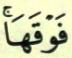 فَوْقَهَاۚ